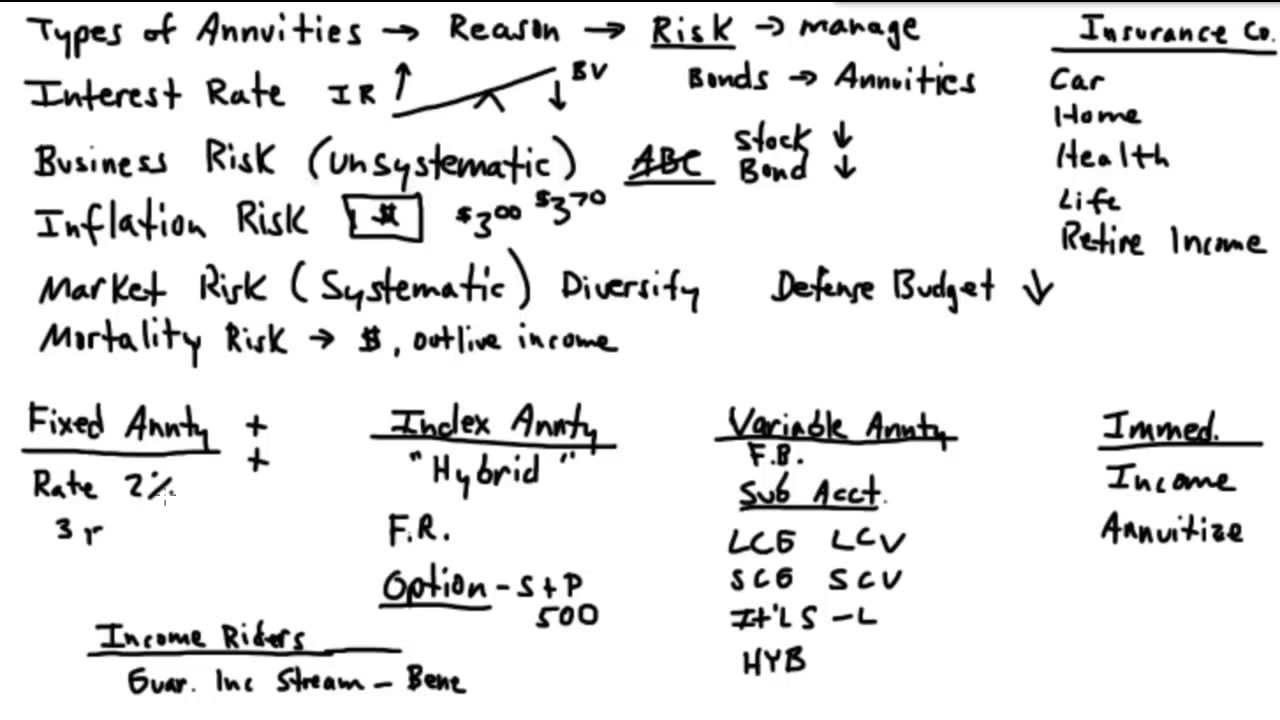 Types of Annuities → Reason → Risk → manage
Interest Rate IR ↑ BV ↓ Bonds → Annuities
Business Risk (Unsystematic) ABC Stock ↓
Bond ↓
Inflation Risk $ $3.00 $3.70
Market Risk (Systematic) Diversify Defense Budget ↓
Mortality Risk → $, outlive income
Insurance Co.
Car
Home
Health
Life
Retire Income
Fixed Annty + +
Rate 2%
3 r
Index Annty
"Hybrid"
F.R.
Option - S+P
500
Variable Annty
F.B.
Sub Acct.
LCG LCV
SCG SCV
It'l S - L
HYB
Immed.
Income
Annuitize
Income Riders
Guar. Inc Stream - Bene